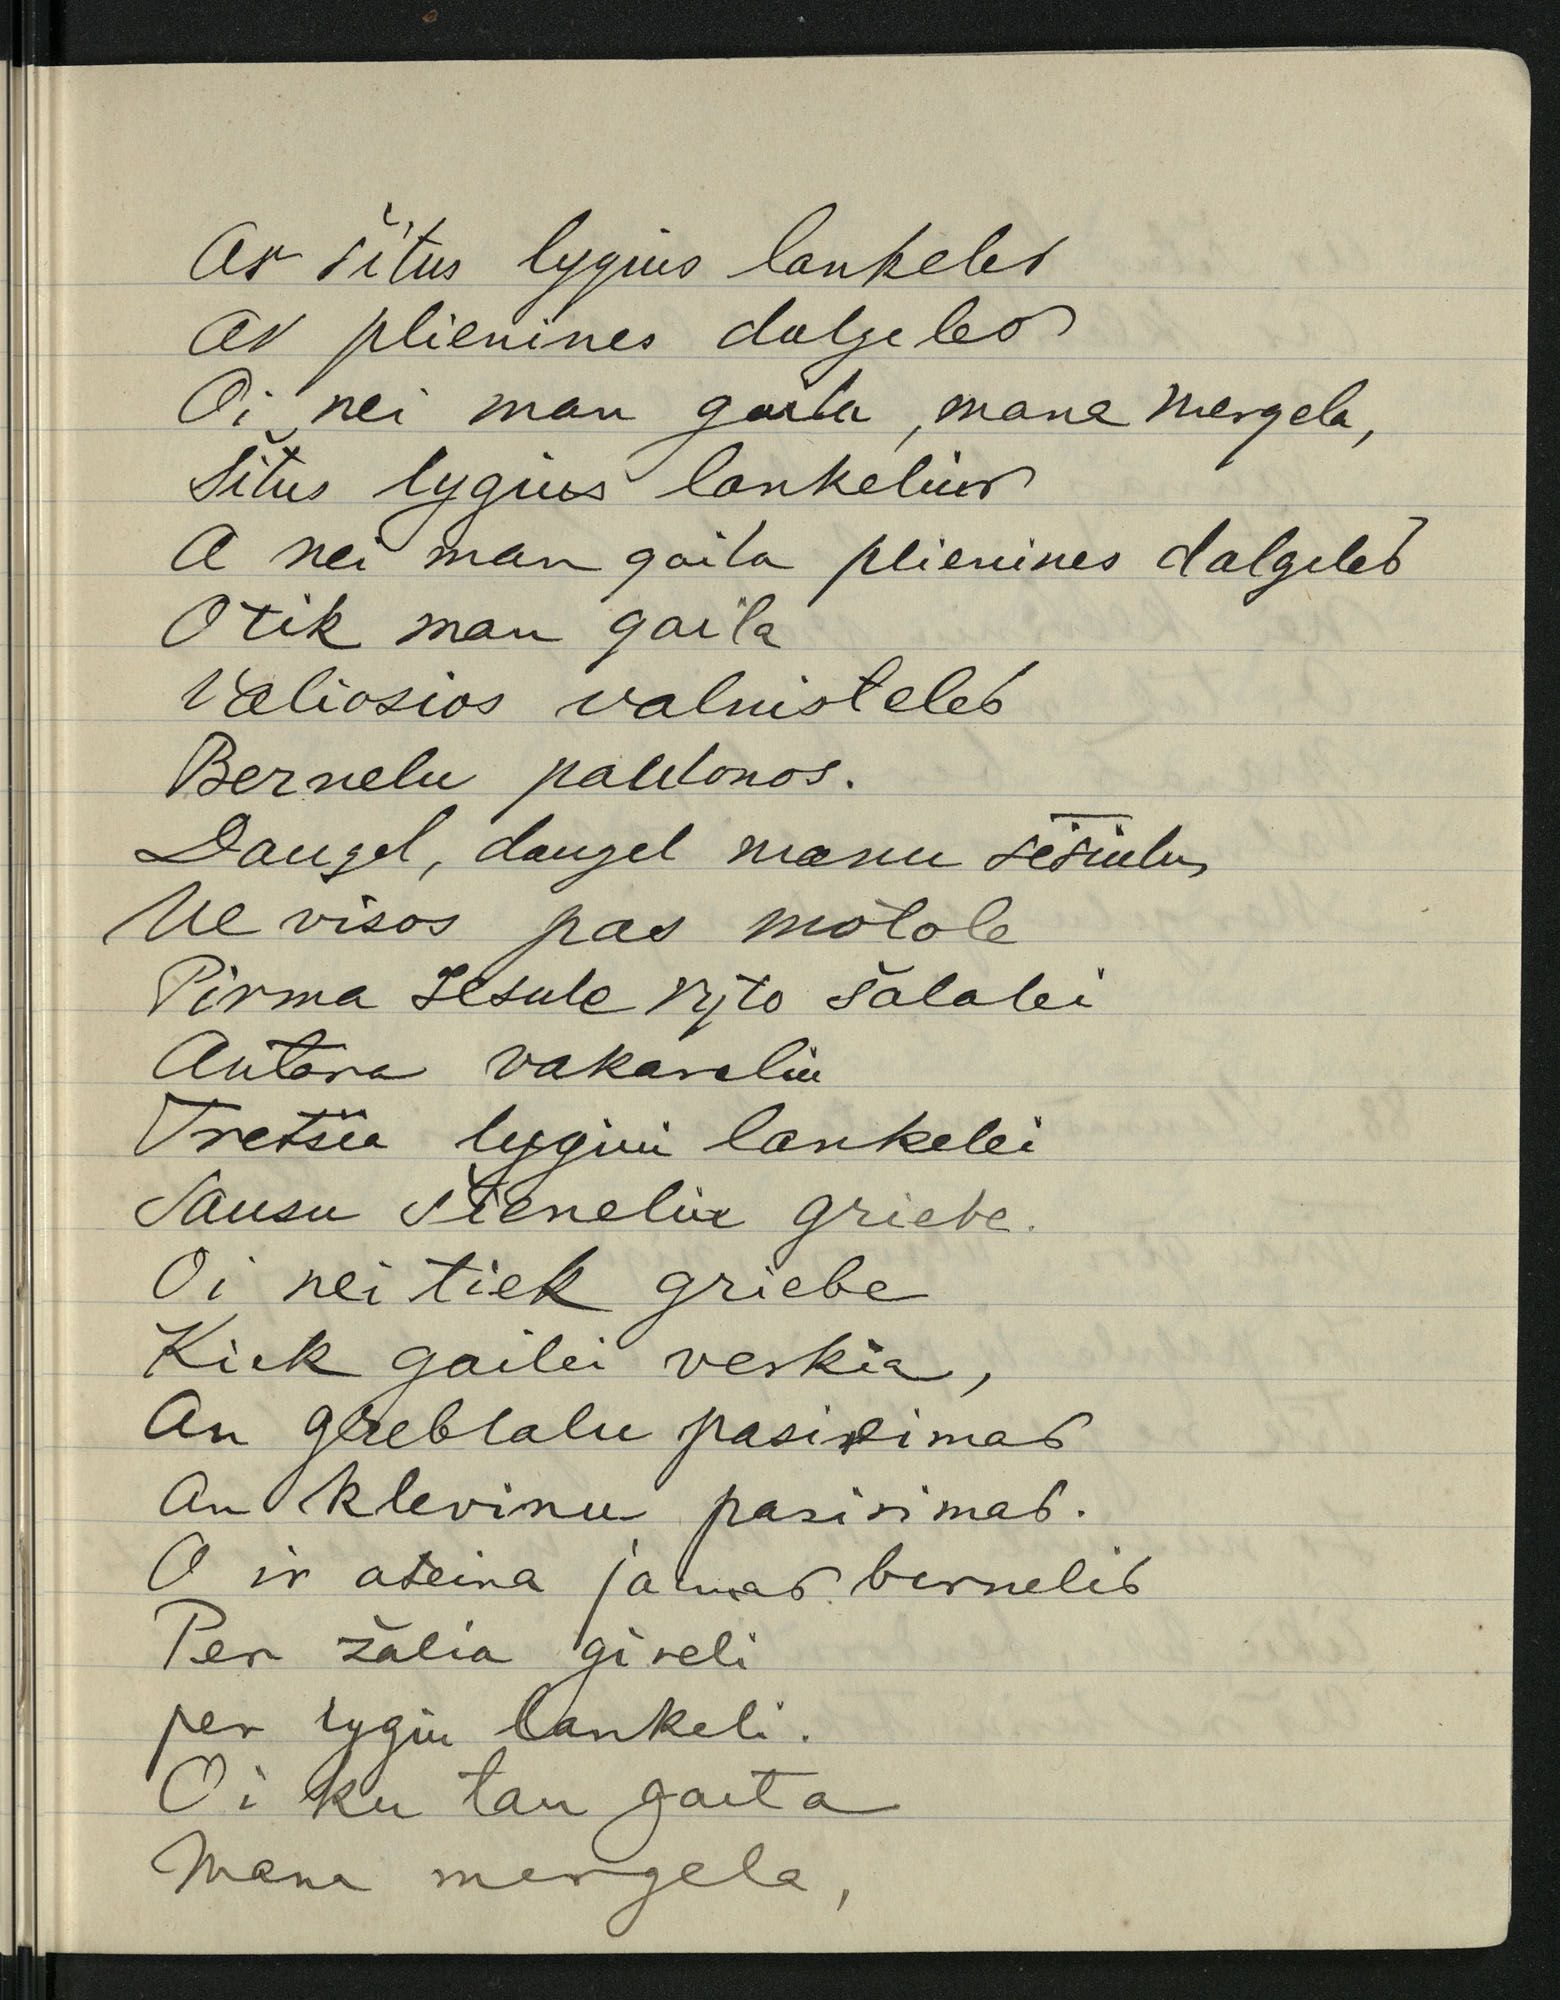 Ar šitus lygius lankeles
Ar plienines dalgeles
Oi nei man gaila, mana mergela,
Šitus lygius lankelius
A nei man gaila plienines dalgeles
O tik man gaila
Valiosios valnisteles
Bernelu paklonos.
Daugel, daugel manu sesiulu
Ne visos pas motole
Pirma sesule ryto šalalei
Antara vakareliu
Tretšia lygiui lankelei
Sausu šieneliu griebe.
Oi nei tiek griebe
Kiek gailei verkia,
An greblalu pasirimas
An klevinu pasirimas.
O ir ateina jaunas bernelis
Per žalia gireli
per lygiu lankeli.
Oi ku tau gaila
Mana mergela,